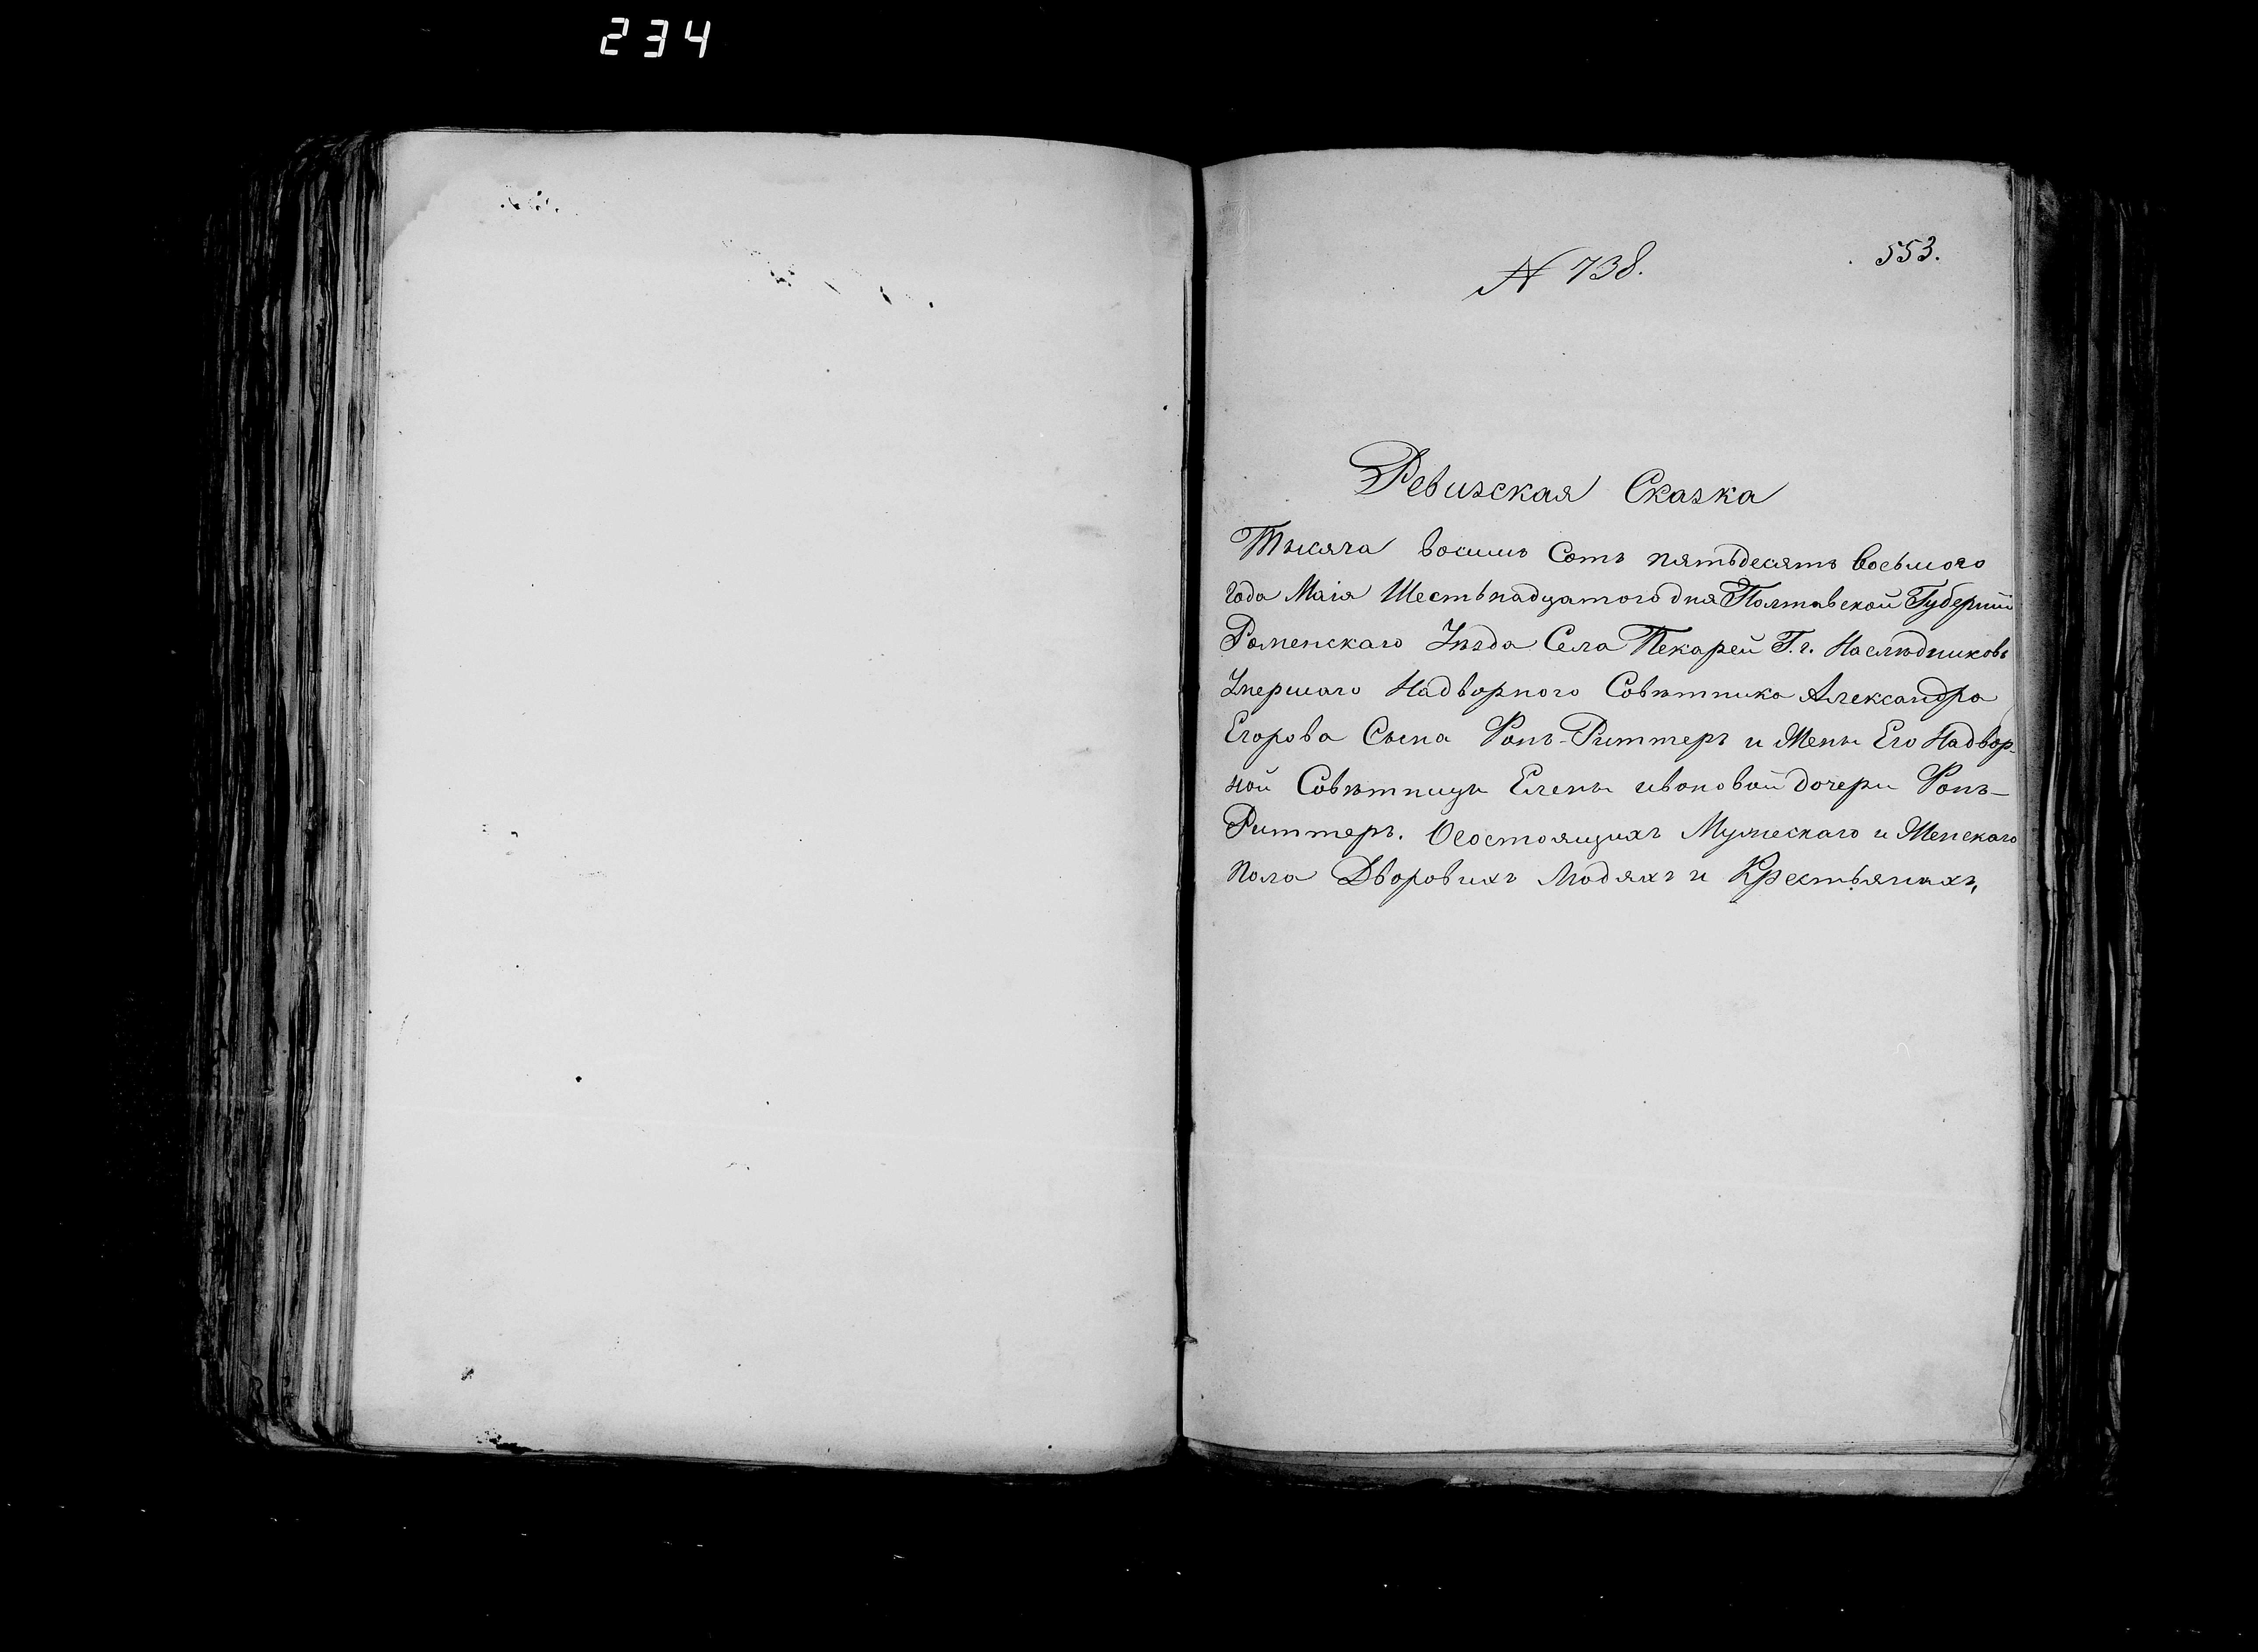 234
N 738.
553.
Ревизская Сказка
Тысяча восимь Сотъ пятьдесятъ восьмого
года Маія Шестьнадцатого дня Полтавской Губерніи
Роменскаго Уѣзда Села Пекарей Г. г. Наслѣдниковъ
Умершаго Надворного Совѣтника Александра
Егорова Сына Фонъ-Риттеръ и Жены Его Надвор-
ной Совѣтницы Елены ивановой дочери Фонъ-
Риттеръ. Осостоящихъ Мужескаго и Женскаго
пола Дворовихъ Людяхъ и Крестьянахъ,